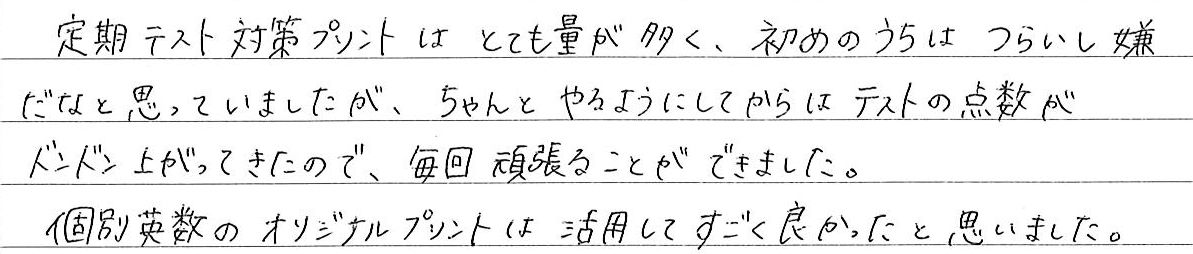 定期テスト対策プリントはとても量が多く、初めのうちはつらいし嫌
だなと思っていましたが、ちゃんとやるようにしてからはテストの点数が
ドンドン上がってきたので、毎回頑張ることができました。
個別英数のオリジナルプリントは活用してすごく良かったと思いました。